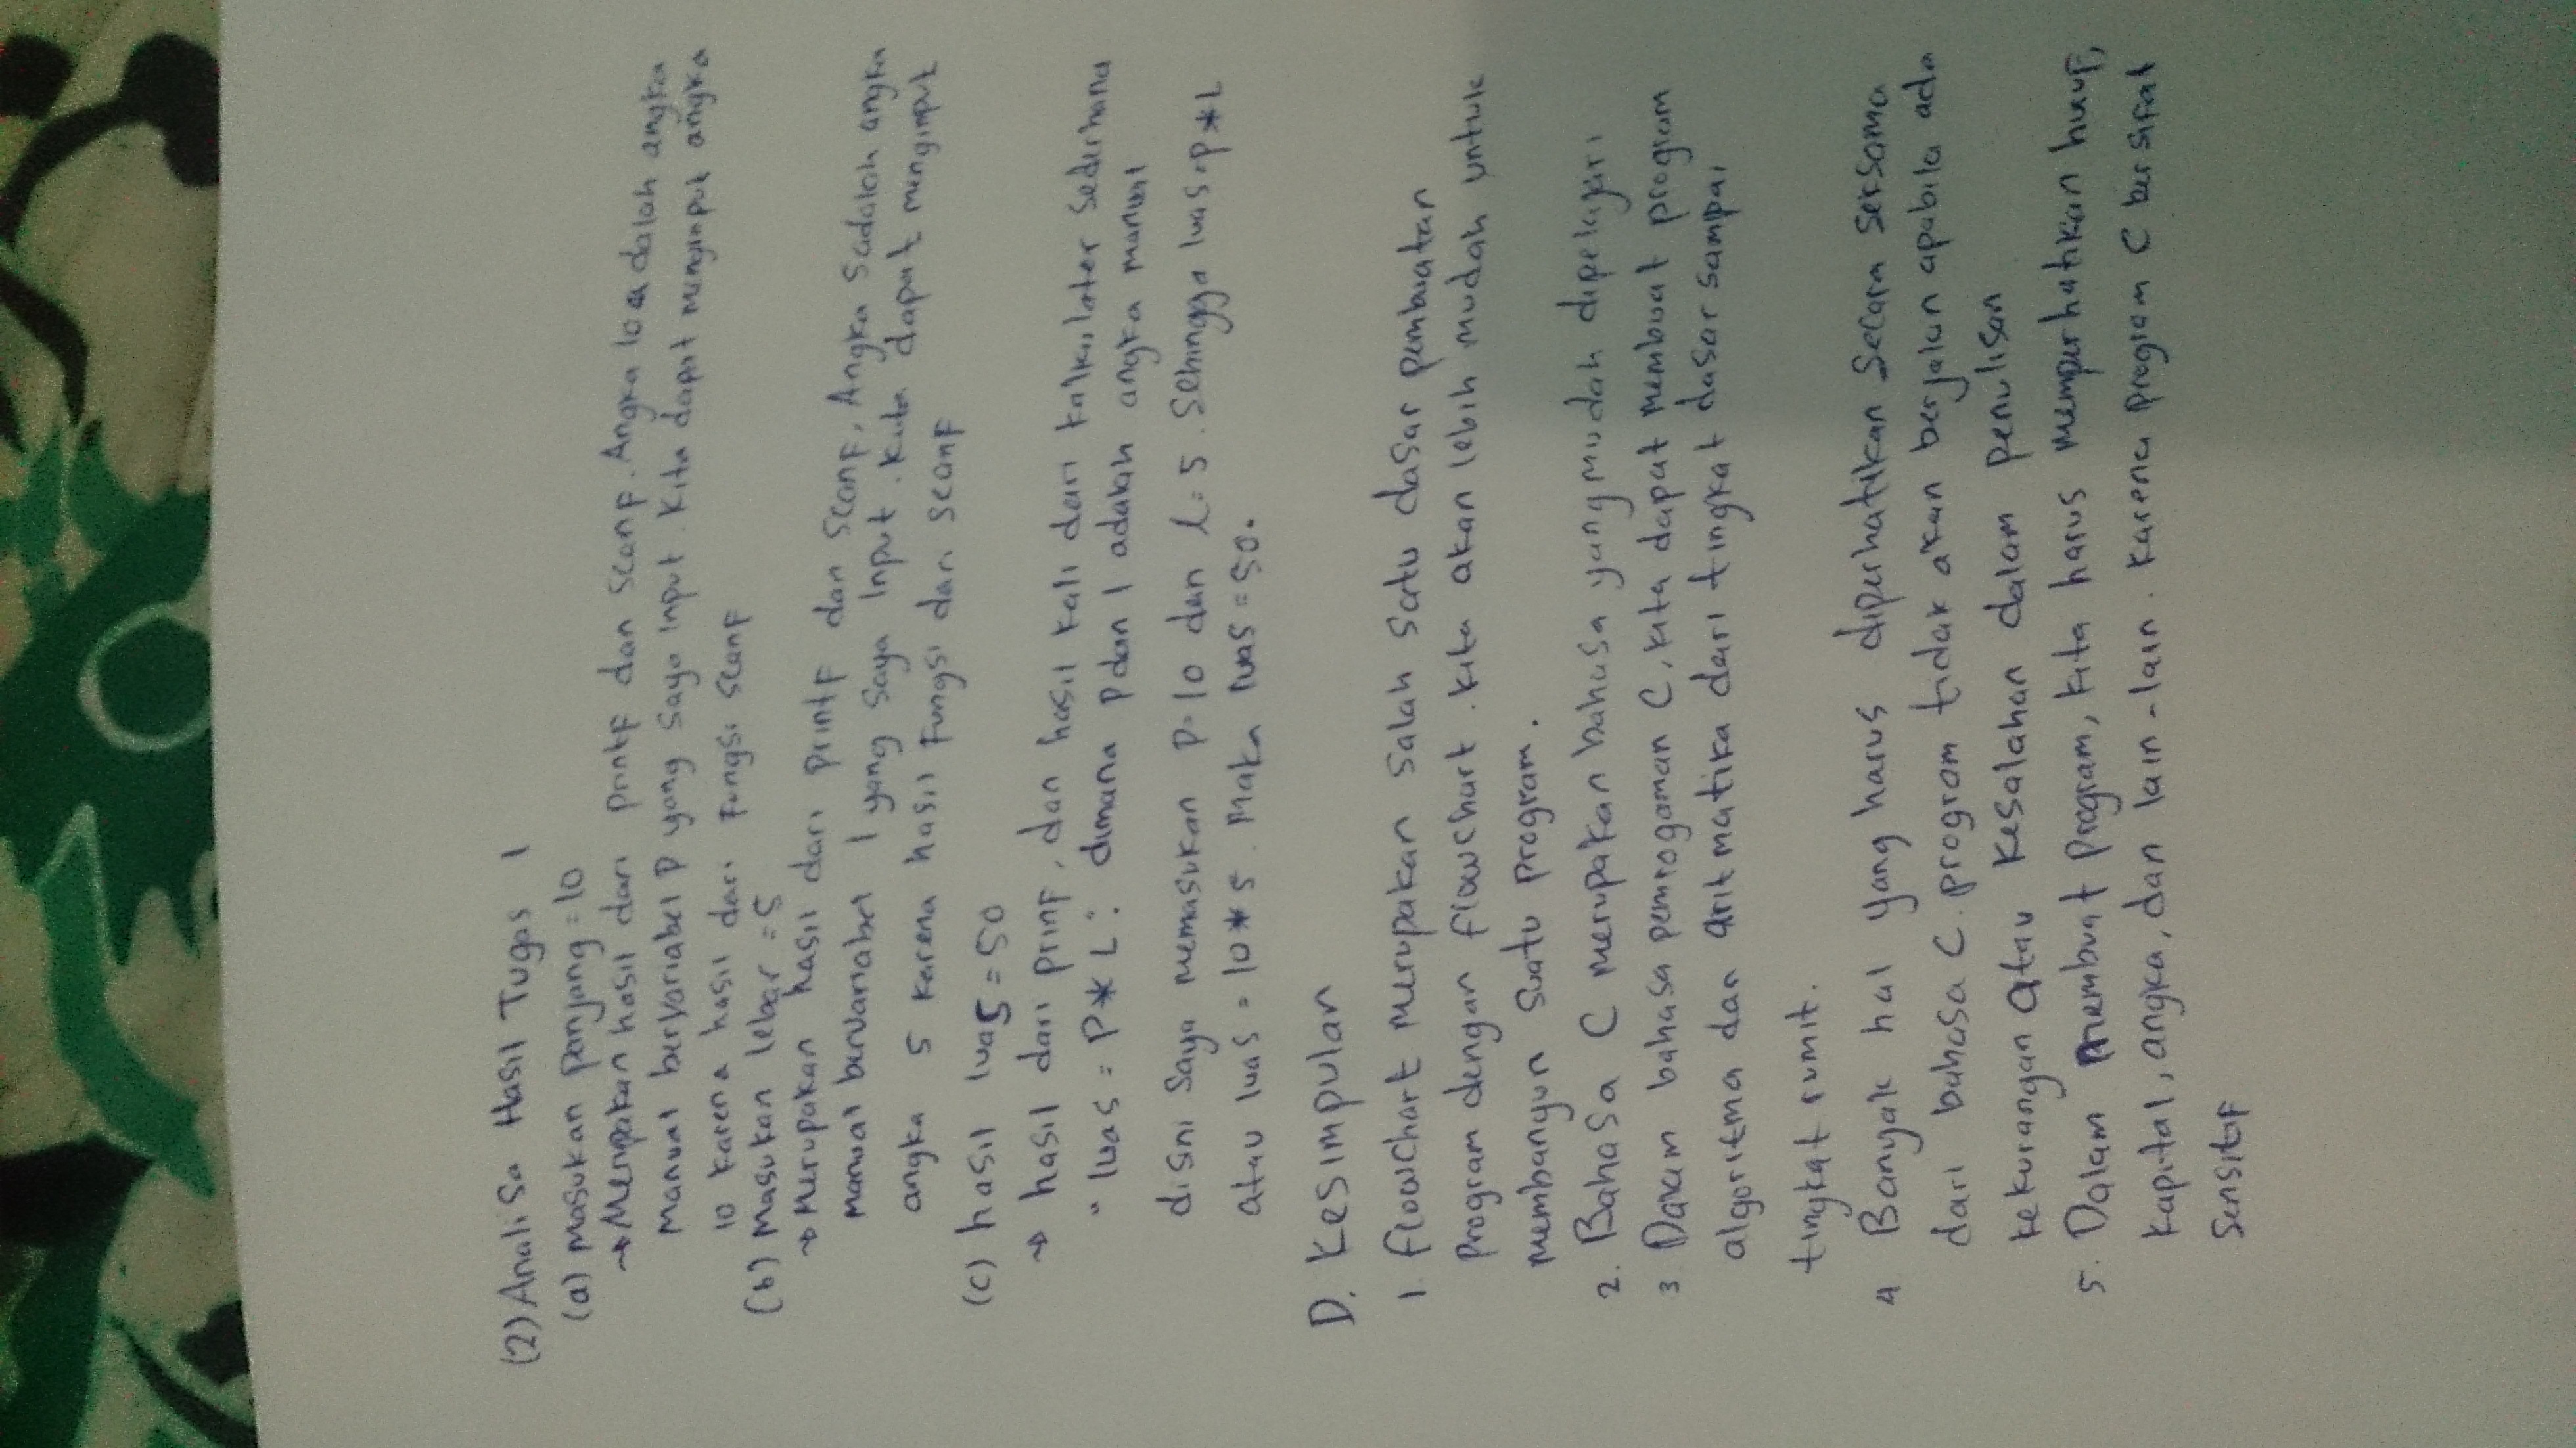 (2) Analisa Hasil Tugas 1
(a) Masukan panjang = 10
→ Merupakan hasil dari printf dan scanf. Angka 10 adalah angka
manual bervariabel P yang saya input. Kita dapat menginput angka
10 karena hasil dari fungsi scanf
(b) Masukan lebar = 5
→ Merupakan hasil dari printf dan scanf, Angka 5 adalah angka
manual bervariabel l yang saya input. Kita dapat menginput
angka 5 karena hasil fungsi dari scanf
(c) hasil luas = 50
→ hasil dari prinf, dan hasil kali dari kalkulator sederhana
" luas = P * L " dimana P dan l adalah angka manual
disini saya memasukan P = 10 dan l = 5. Sehingga luas = p * L
atau luas = 10 * 5. Maka luas = 50.
D. Kesimpulan
1. flowchart merupakan salah satu dasar pembuatan
program dengan flowchart. kita akan lebih mudah untuk
membangun suatu program.
2. Bahasa C merupakan bahasa yang mudah dipelajari
3 Dalam bahasa pemrogaman C, kita dapat membuat program
algoritma dan aritmatika dari tingkat dasar sampai
tingkat rumit.
4 Banyak hal yang harus diperhatikan secara seksama
dari bahasa C. program tidak akan berjalan apabila ada
kekurangan atau kesalahan dalam penulisan
5. Dalam membuat program, kita harus memperhatikan huruf,
kapital, angka, dan lain-lain. Karena program C bersifat
sensitif